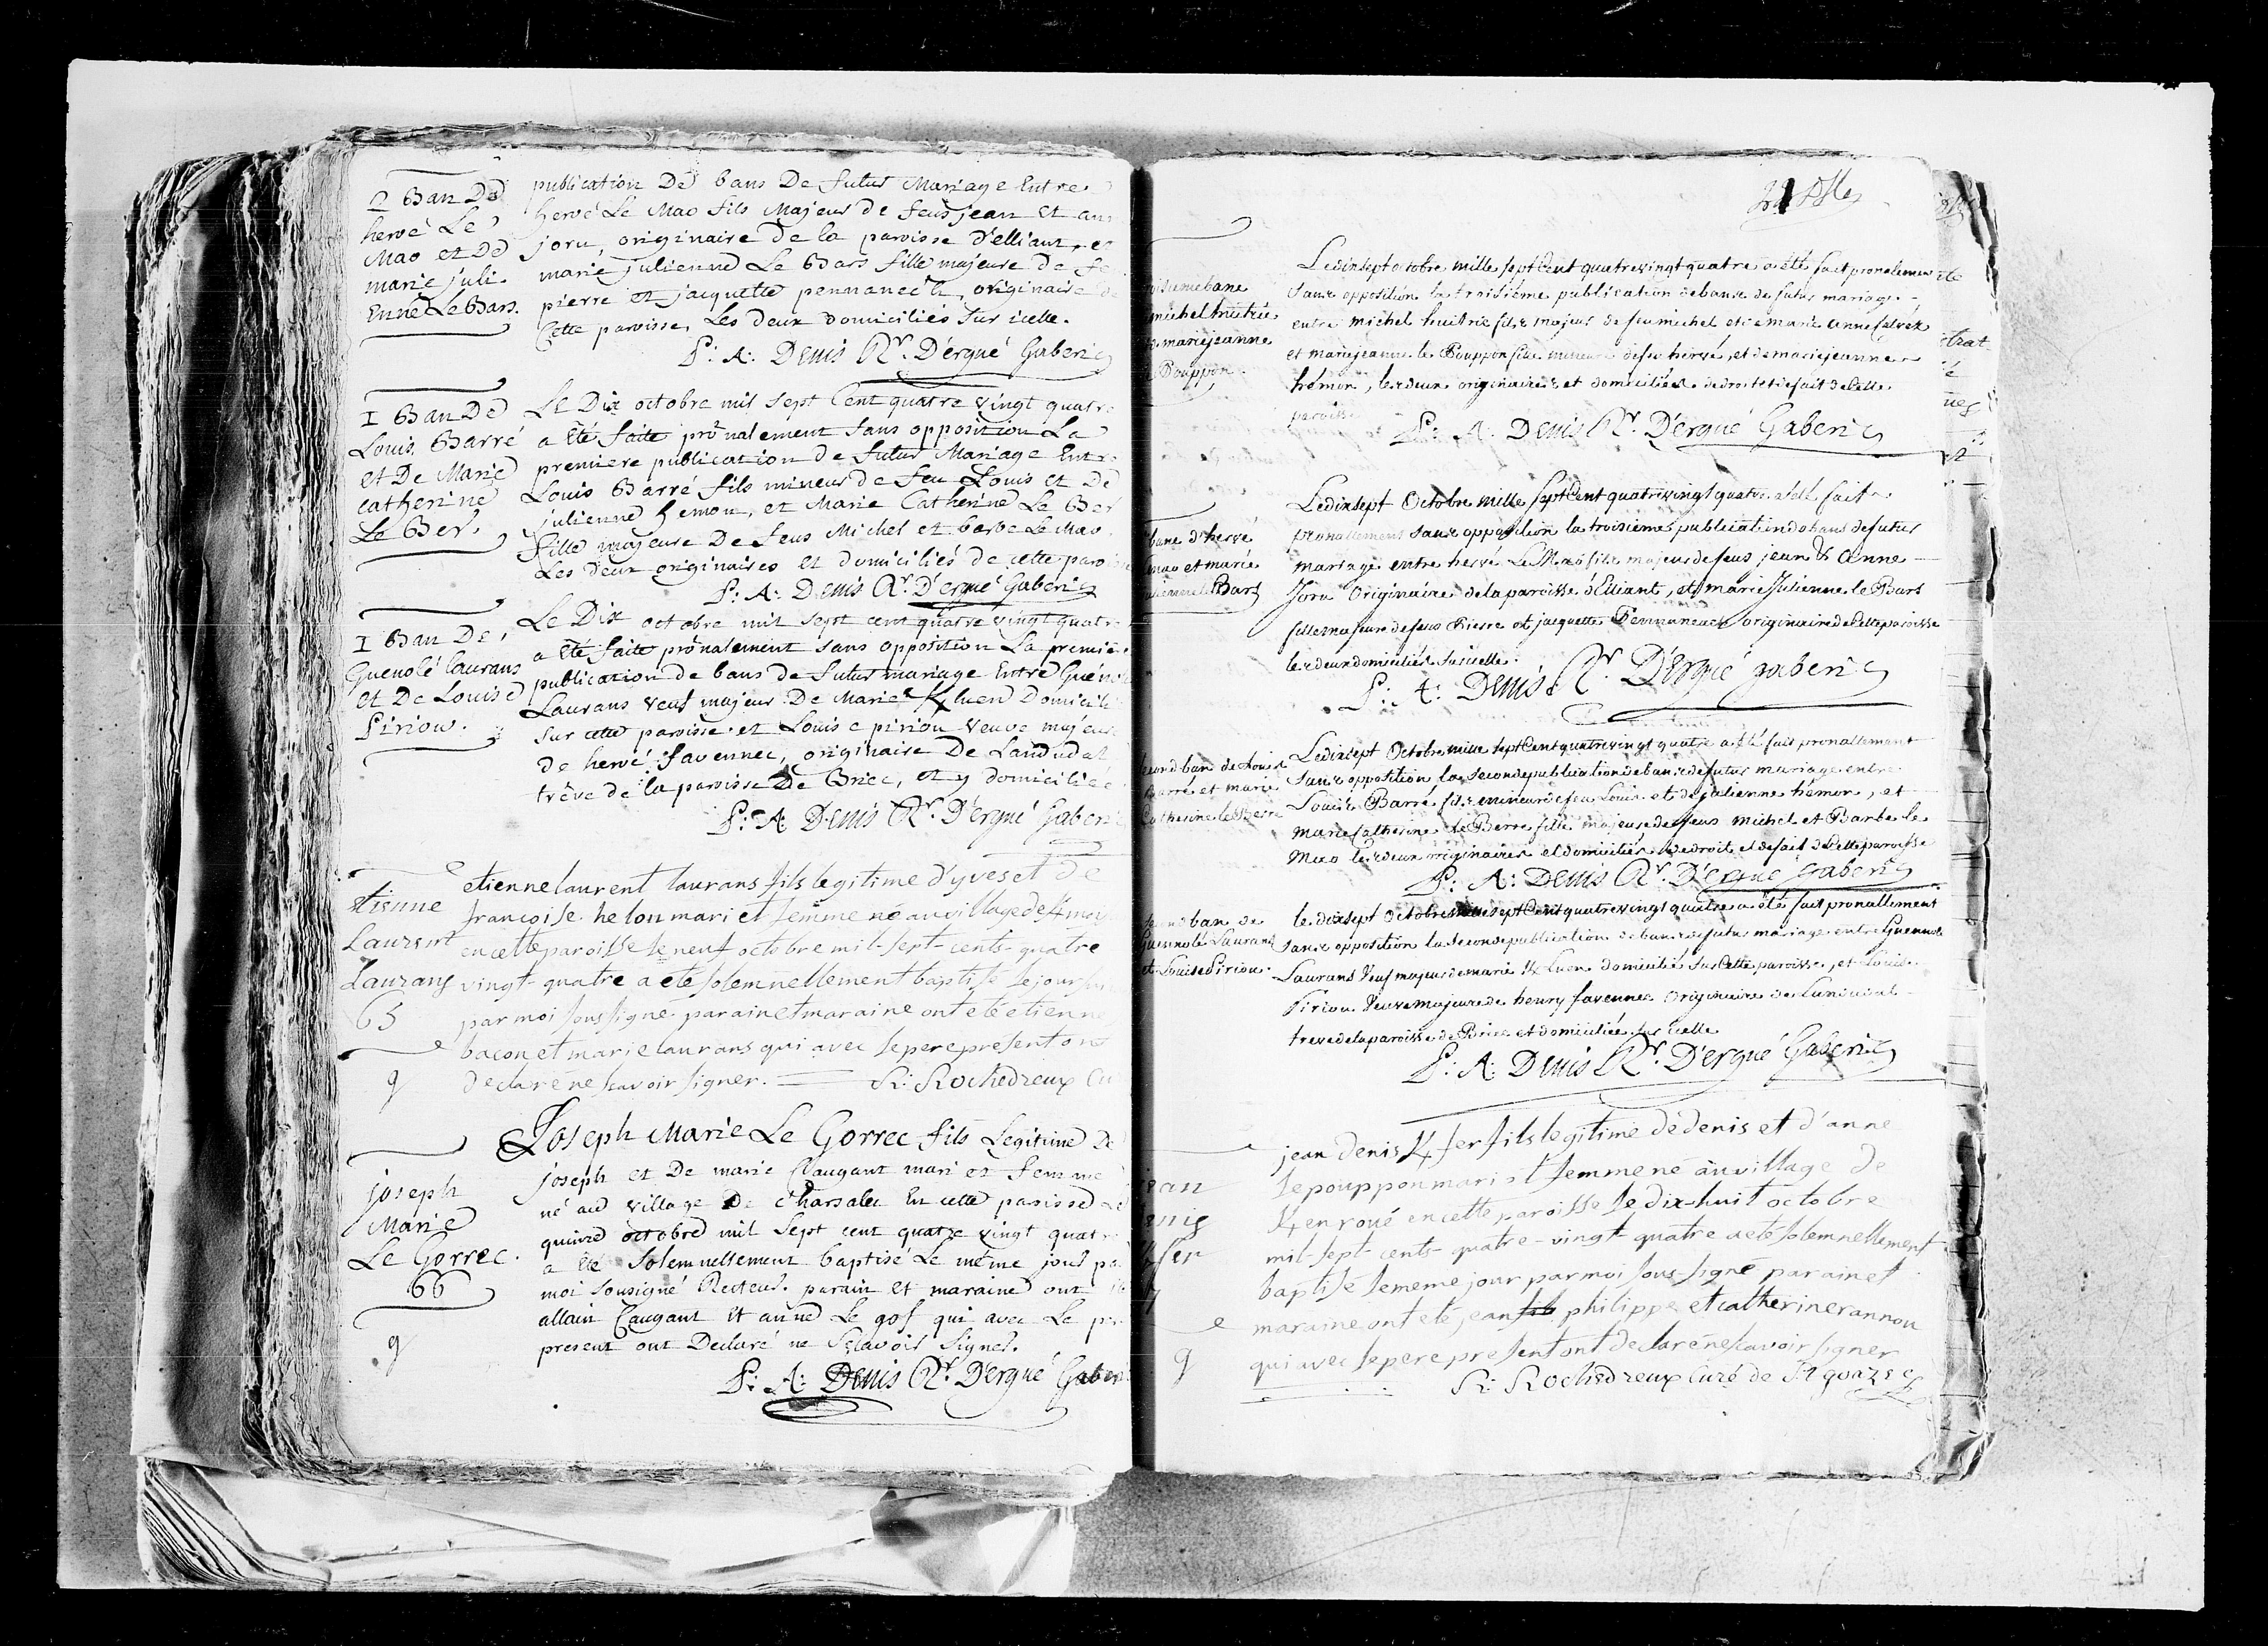 2 Ban De
hervé Le
Mao et De
marie juli
Enne Le Bars.
publication De bans De futur Mariage Entre
hervé Le Mao fils Majeur de feus jean et an
joru, originaire de la paroisse d'elliant, et
marie julienne Le Bars fille majeure de fe
pierre et jacquette pennanec'h, originaire de
Cette paroisse, Les deux domiciliés sur icelle.
P: A: Denis Rr. D'ergué Gaberic
1 Ban De
Louis Barré
et De Marie
catherine
Le Ber.
Le Dix octobre mil sept Cent quatre vingt quatre
a été faite prônalement sans opposition La
premiere publication de futur Mariage Entre
Louis Barré fils mineur de feu Louis et De
julienne hemon, et Marie Catherine Le Ber
fille majeure De feus Michel et barbe Le Mao.
Les deux originaires et domiciliés de cette paroisse
P: A: Denis Rr. D'ergué Gaberic
1 Ban De
Guenolé laurans
et De Louise
Piriou.
Le Dix octobre mil sept cent quatre vingt quatr
a été faite prônalement sans opposition La premie
publication de bans de futur mariage Entre Guénol
Laurans veuf majeur De Marie Kluen Domicili
sur cette paroisse et Louise piriou veuve majeure
de hervé favennec, originaire De Landudal
trêve de la paroisse De Briec, et y domiciliée
P: A: Denis Rr. D'ergué Gaberic
etienne
Laurent
Laurans
65
g
etienne laurent laurans fils legitime d'yves et de
françoise helou mari et femme né au village de
en cette paroisse le neuf octobre mil-sept-cents-quatre
vingt-quatre a eté solemnellement baptisé le jour
par moi sous signé parain et maraine ont eté etienne
bacon et marie laurans qui avec le pere present ont
declaré ne scavoir signer. R: Rochedreux Cu
joseph
Marie
Le Gorrec.
66
g
Joseph Marie Le Gorrec fils Legitime De
joseph et De marie Caugant mari et femme
né au village De en cette paroisse Le
quinze octobre mil sept cent quatre vingt quatre
a été solemnellement baptisé Le même jour pa
moi sousigné Recteur. parain et maraine ont
allain Caugant et anne Le gof qui avec Le per
present ont Declaré ne sçavoir signer.
P: A: Denis Rr. D'ergué Gaberic
oisieme bane
michel huitrie
marie jeanne
Pouppon.
Le dix sept octobre mille sept Cent quatre vingt quatre a été fait pronalemen
sans opposition la troisiéme publication de bans de futur mariage
entre michel huitrie fils majeur de feu michel et de marie anne
et marie jeanne le Pouppon fille mineure de feu hervé, et de marie jeanne
hémon, les deux originaires et domiciliés de droit et de fait de Cette
paroisse
P: A: Denis Rr. D'ergué Gaberic
bane d'hervé
mao et marie
julienne le Bars
Le dix sept Octobre mille sept Cent quatre vingt quatre a été fait
pronallement sans opposition la troisieme publication de bans de futur
mariage entre hervé Le Mao fils majeur de feus jean & Anne
Joru Originaire de la paroisse d'Elliant, et marie Julienne le Bars
fille majeure de feus Pierre et jacquette Pennaneach originaire de Cette paroisse
les deux domiciliés sur icelle.
P: A: Denis Rr. D'Ergué gaberic
second ban de Louis
Barré et marie
Catherine le Berre
Le dix sept Octobre mille sept Cent quatre vingt quatre a été fait pronallemant
sans opposition la seconde publication de bans de futur mariage entre
Louis Barré fils mineur de feu Louis et de julienne hémon, et
marie Catherine le Berre fille majeure de feus michel et Barbe le
Mao les deux originaires et domiciliés de droit et de fait de Cette paroisse
P: A: Denis Rr. D'ergué Gaberic
second ban de
Guennolé Laurans
et Louise Piriou.
le dix sept Octobre mille sept Cent quatre vingt quatre a été fait pronallement
sans opposition la seconde publication de bans de futur mariage entre Guennole
Laurans Veuf majeur de marie Kluen domicilié sur Cette paroisse, et Louise
Piriou Veuve Majeure de henry favennec Originaire de Landudal
treve de la paroisse de Briec et domiciliée sur icelle
P: A: Denis Rr. D'ergué Gaberic
jean
denis
Kfer
7
g
jean denis Kfer fils legitime de denis et d'anne
le pouppon mari et femme né au village de
Kenroué en cette paroisse le dix-huit octobre
mil-sept-cents-quatre-vingt-quatre a eté solemnellement
baptisé le meme jour par moi sous-signé parain et
maraine ont eté jean philippe et catherine rannou
qui avec le pere present ont declaré ne scavoir signer
R: Rochedreux Curé de St guazec